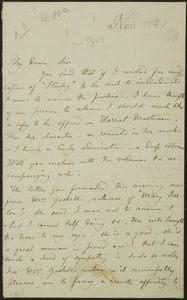 Nov
My Dear Sir
You said that if I wished for any
copies of "Shirley" to be sent to individuals
I was to name the parties. I have thought
of one person to whom I should much like
a copy to be offered - Harriet Martineau.
For her character - as revealed in her works
- I have a lively admiration - a deep esteem.
Will you enclose with the volume the ac-
companying note.
The letter you forwarded this morning was
from Mrs Gaskell - authoress of "Mary Bar-
ton". She said I was not to answer it -
but I cannot help doing so. Her note brought
the tears to my eyes: she is a good - she is
a great woman - proud am I that I can
touch a chord of sympathy in souls so noble.
In Mrs Gaskell's nature it mournfully
pleases me to fancy a remote affinity to